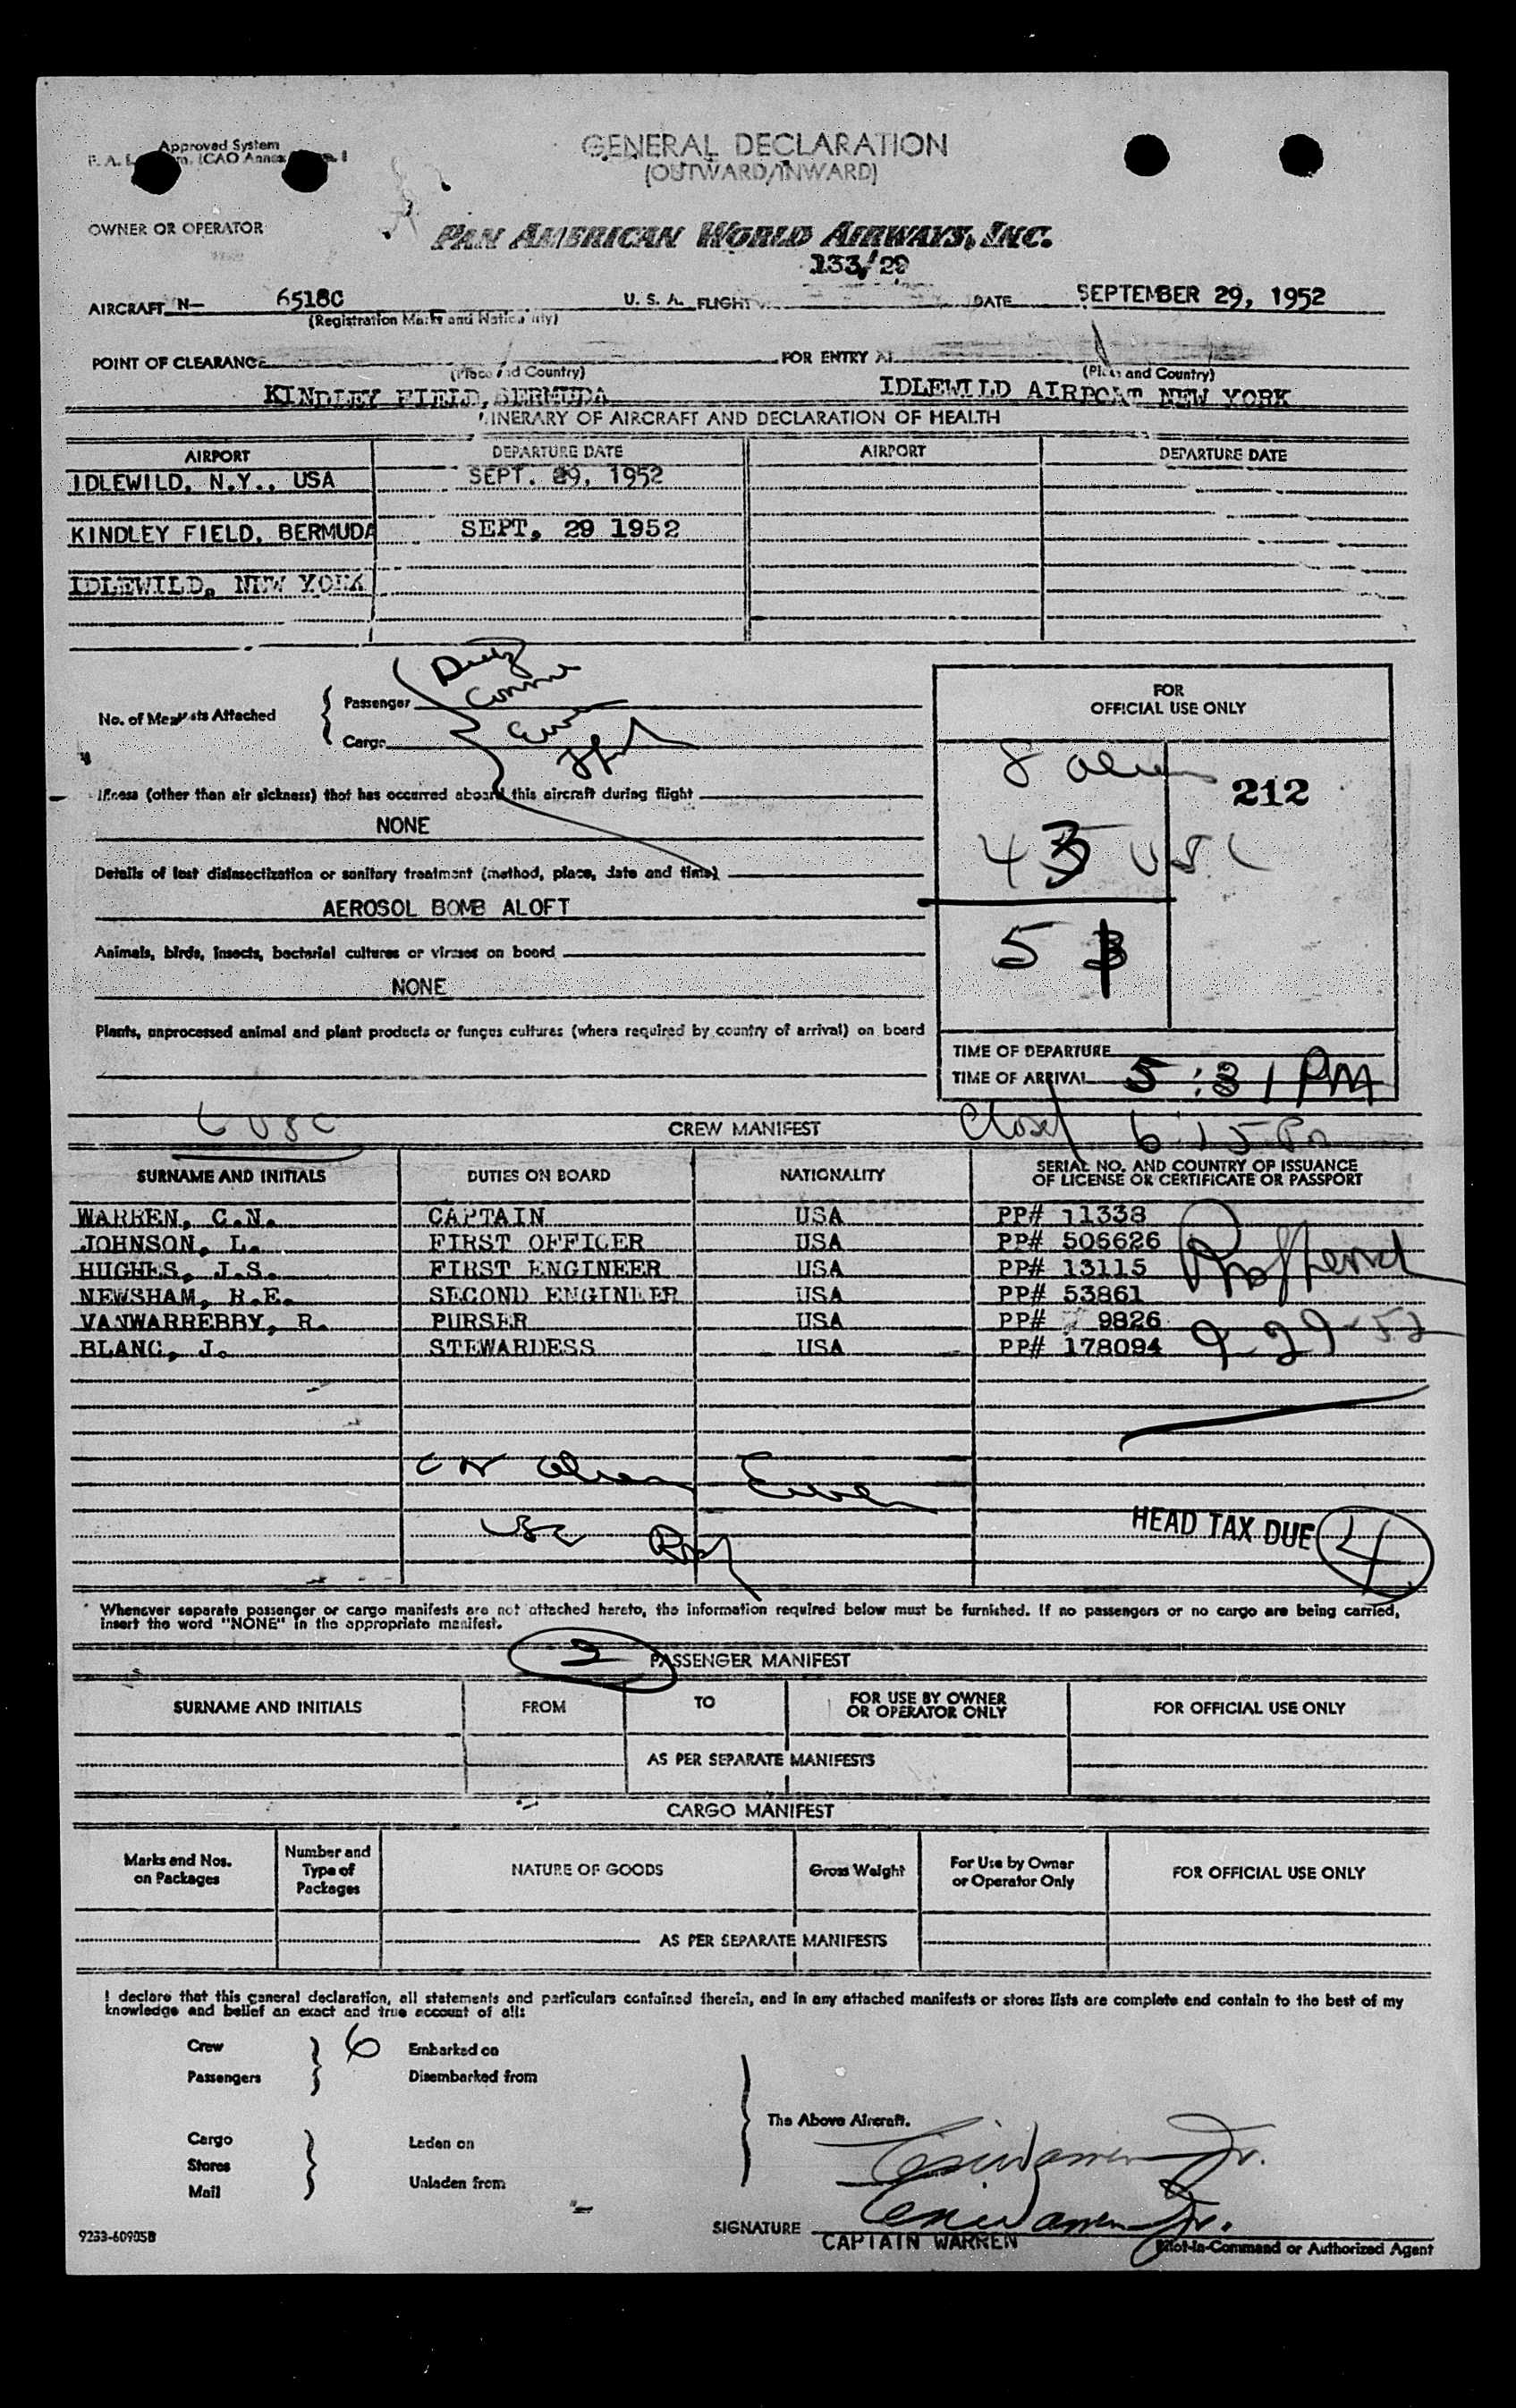 Approved System
GENERAL DECLARATION
(OUTWARD/INWARD)
OWNER OR OPERATOR
PAN AMERICAN WORLD AIRWAYS, INC.
133/29
AIRCRAFT N— 6518C U. S. A. FLIGHT DATE SEPTEMBER 29, 1952
(Registration Marks and Nationality)
POINT OF CLEARANCE FOR ENTRY AT
(Place and Country) (Place and Country)
KINDLEY FIELD, BERMUDA IDLEWILD AIRPORT NEW YORK
ITINERARY OF AIRCRAFT AND DECLARATION OF HEALTH
AIRPORT DEPARTURE DATE AIRPORT DEPARTURE DATE
IDLEWILD, N.Y., USA SEPT. 29, 1952
KINDLEY FIELD, BERMUDA SEPT. 29 1952
IDLEWILD, NEW YORK
No. of Manifests Attached
Passenger
Cargo
FOR
OFFICIAL USE ONLY
8
212
43 USC
5
Illness (other than air sickness) that has occurred aboard this aircraft during flight
NONE
Details of last disinsectization or sanitary treatment (method, place, date and time)
AEROSOL BOMB ALOFT
Animals, birds, insects, bacterial cultures or viruses on board
NONE
Plants, unprocessed animal and plant products or fungus cultures (where required by country of arrival) on board
TIME OF DEPARTURE
TIME OF ARRIVAL 5:31 PM
6 USC CREW MANIFEST Closed 6:15 Pm
SURNAME AND INITIALS DUTIES ON BOARD NATIONALITY SERIAL NO. AND COUNTRY OF ISSUANCE
OF LICENSE OR CERTIFICATE OR PASSPORT
WARREN, C.N. CAPTAIN USA PP# 11338
JOHNSON, L. FIRST OFFICER USA PP# 506626
HUGHES, J.S. FIRST ENGINEER USA PP# 13115
NEWSHAM, R.E. SECOND ENGINEER USA PP# 53861
VANWARREBBY, R. PURSER USA PP# 9826
BLANC, J. STEWARDESS USA PP# 178094
9-29-52
USC
HEAD TAX DUE 4
Whenever separate passenger or cargo manifests are not attached hereto, the information required below must be furnished. If no passengers or no cargo are being carried,
insert the word "NONE" in the appropriate manifest.
PASSENGER MANIFEST
SURNAME AND INITIALS FROM TO FOR USE BY OWNER
OR OPERATOR ONLY FOR OFFICIAL USE ONLY
AS PER SEPARATE MANIFESTS
CARGO MANIFEST
Marks and Nos.
on Packages
Number and
Type of
Packages
NATURE OF GOODS
Gross Weight
For Use by Owner
or Operator Only
FOR OFFICIAL USE ONLY
AS PER SEPARATE MANIFESTS
I declare that this general declaration, all statements and particulars contained therein, and in any attached manifests or stores lists are complete and contain to the best of my
knowledge and belief an exact and true account of all:
Crew 6 Embarked on
Passengers Disembarked from
The Above Aircraft.
Cargo Laden on
Stores
Mail Unladen from
SIGNATURE
CAPTAIN WARREN Pilot-in-Command or Authorized Agent
9233-60905B